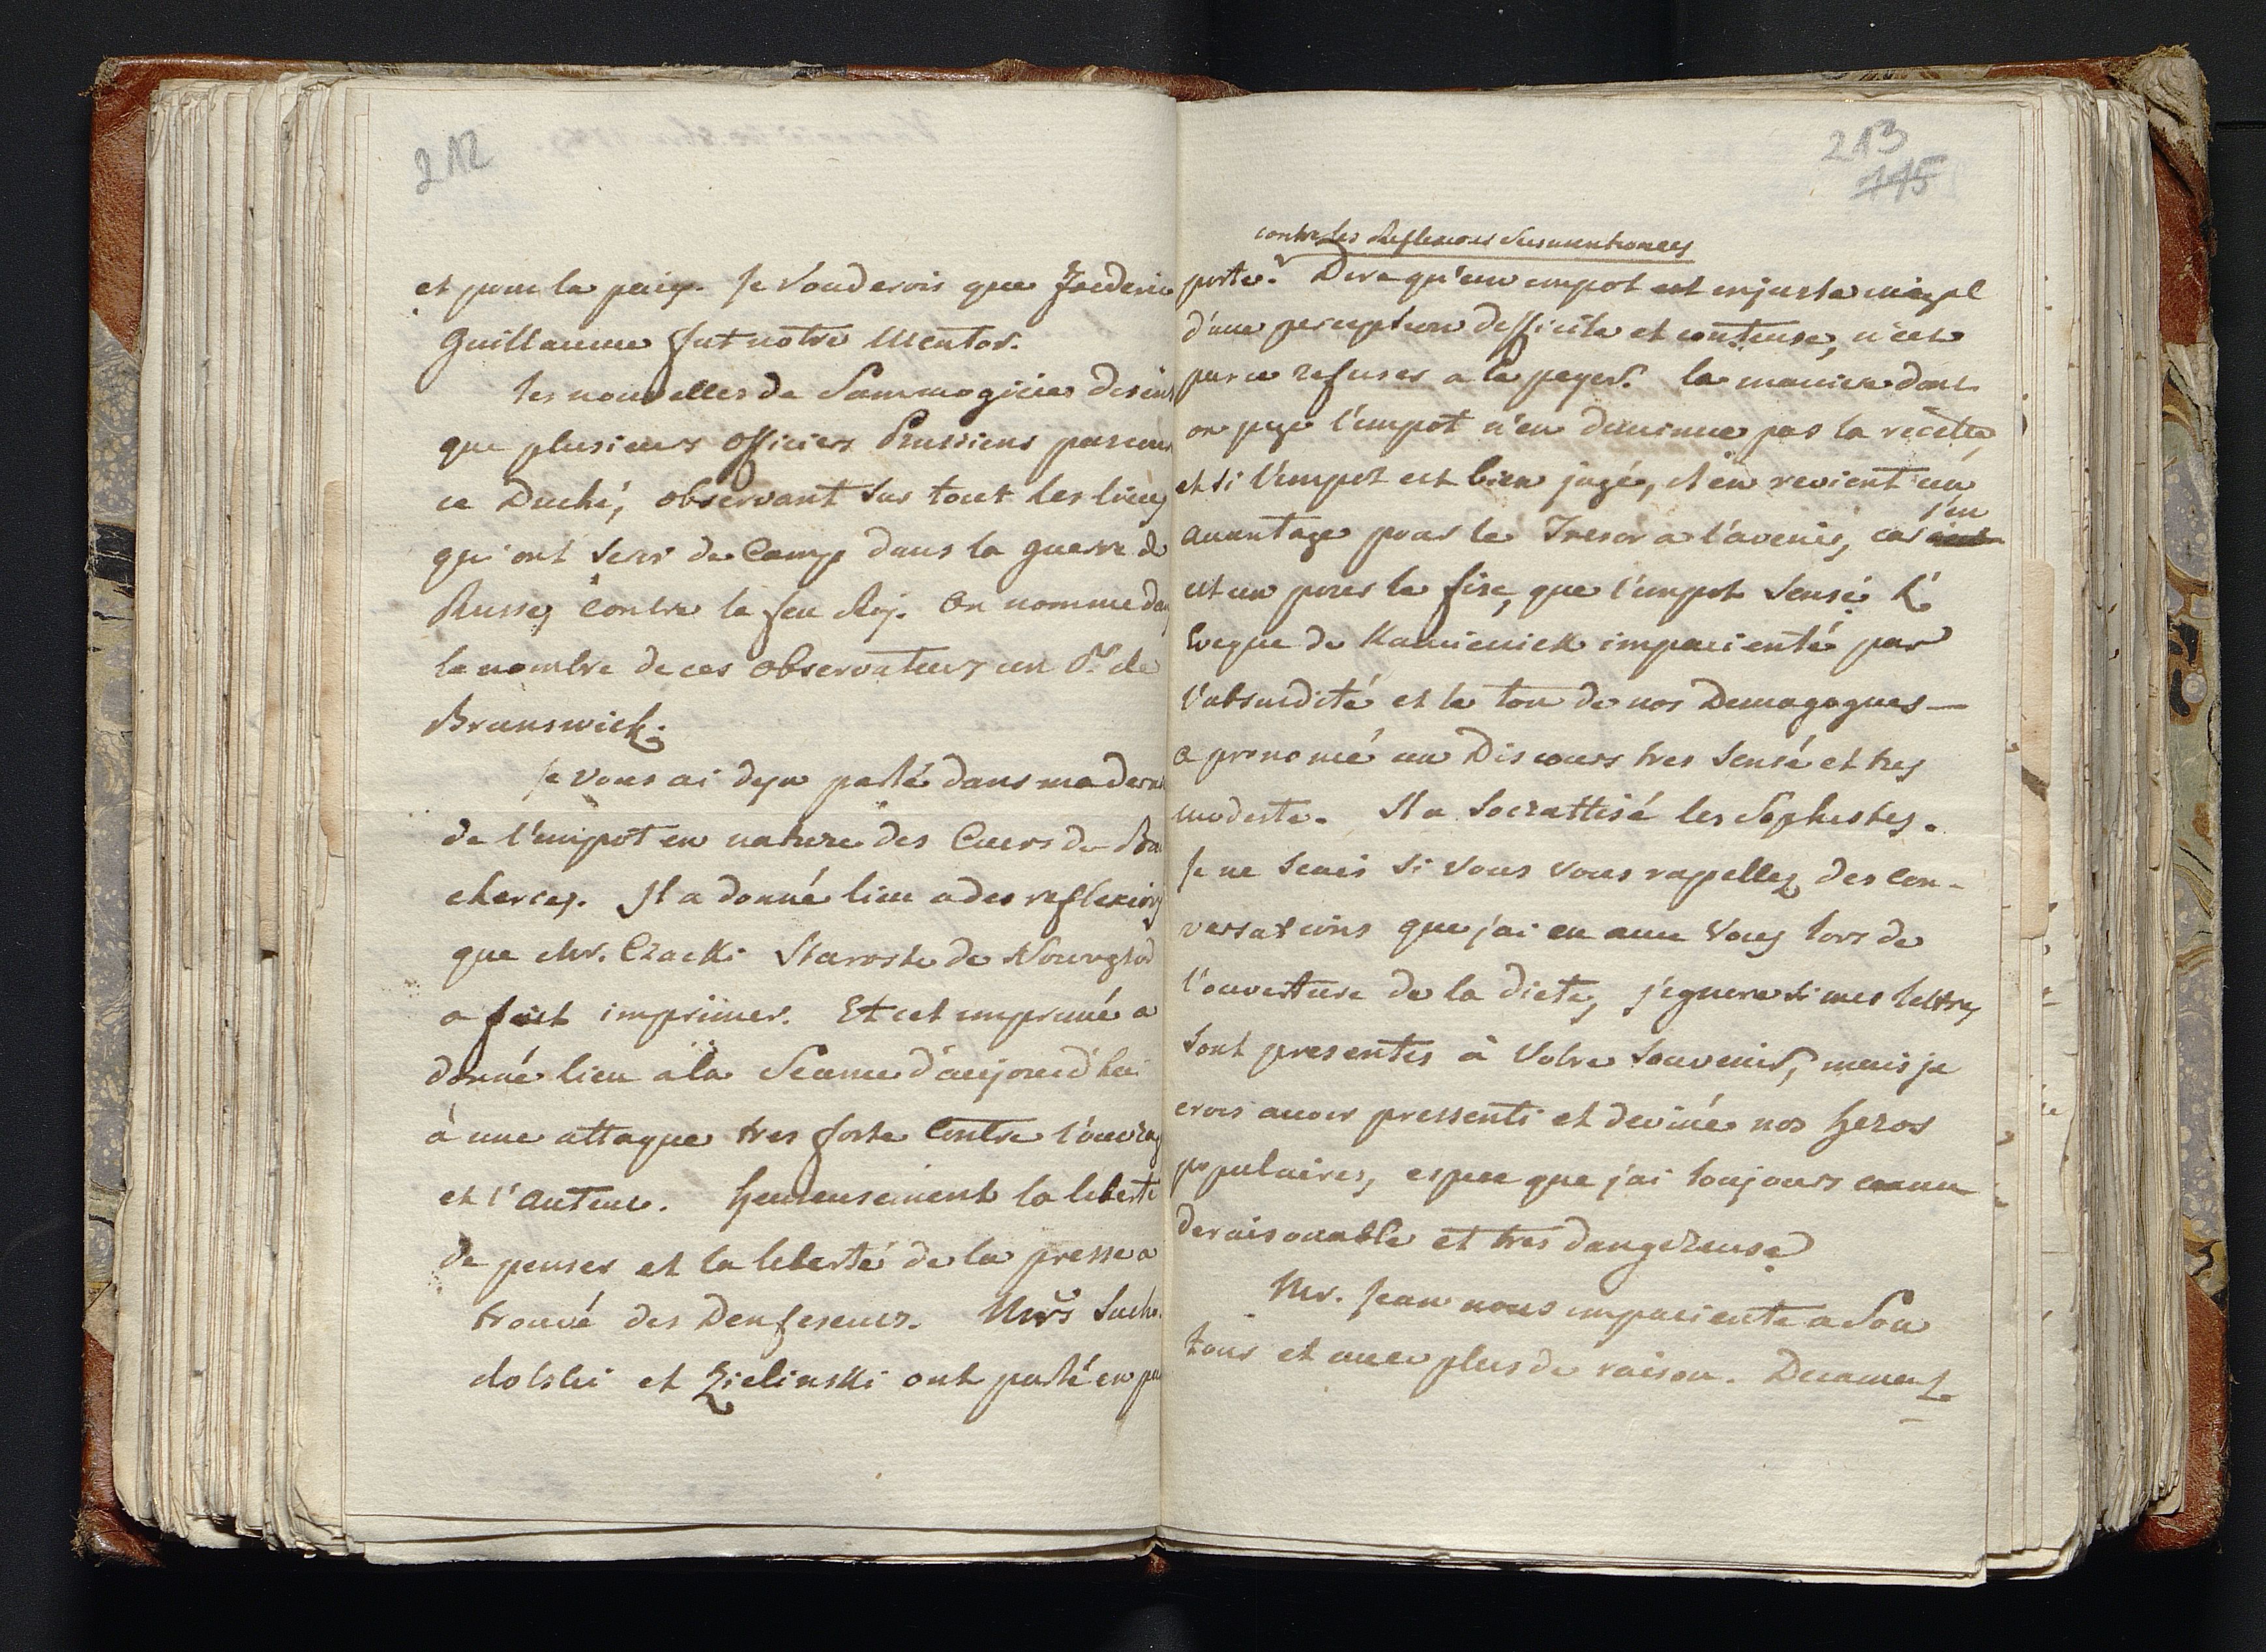 212
et pour la paix. Je vouderois que Frederic
Guillaume fut notre Mentor.
Les nouvelles de Sammogicie disent
que plusieurs officiers Prussiens parcour
ce Duché, observant sur tout les lieux
qui ont servi de Camp dans la guerre de
Russes contre le feu Roj. On nomme dans
le nombre de ces observateurs un Pr. de
Brunswick.
Je vous ai deja parlé dans ma dern
de l'impot en nature des Cuers de Bou
cheries. Il a donné lieu a des reflexions
que Mr. Czacki Staroste de Nowogrod
a fait imprimer. Et cet imprimé a
donné lieu a la Seance d'aujourd'hui
à une attaque tres forte contre l'ouvrag
et l'auteur. heureusement la liberté
de penser et la liberté de la presse a
trouvé des Denfeseurs. Mrs Sucho
dolski et Zielinski ont parlé en pa
213
115
contre les Reflexions Susmentionees
porte. Dire qu'un impot est injuste inegal
d'une perception difficile et couteuse, n'est
par ce refuser a le payer. la maniere dont
on juge l'impot n'en diminue pas la recette,
et si l'impot est bien jugé, il en revient un
avantage pour le Tresor a l'avenir, car
s'en
est un pour le fisc, que l'impot sensé. L'
Eveque de Kamieniek impacienté par
l'absurdité et le ton de nos Demagogues —
a prononcé un Discours tres sensé et tres
modeste. Il a Socrattisé les Sophistes.
Je ne scais si vous vous rapellez des con-
versations que j'ai eu avec Vous lors de
l'ouverture de la diete, j'ignore si mes lettres
sont presentes à Votre Souvenir, mais je
crois avoir pressenti et deviné nos heros
populaires, espece que j'ai toujours connu
deraisonable et tres dangereuse
Mr. Jean nous impaciente a Son
tour et avec plus de raison. Decamerf